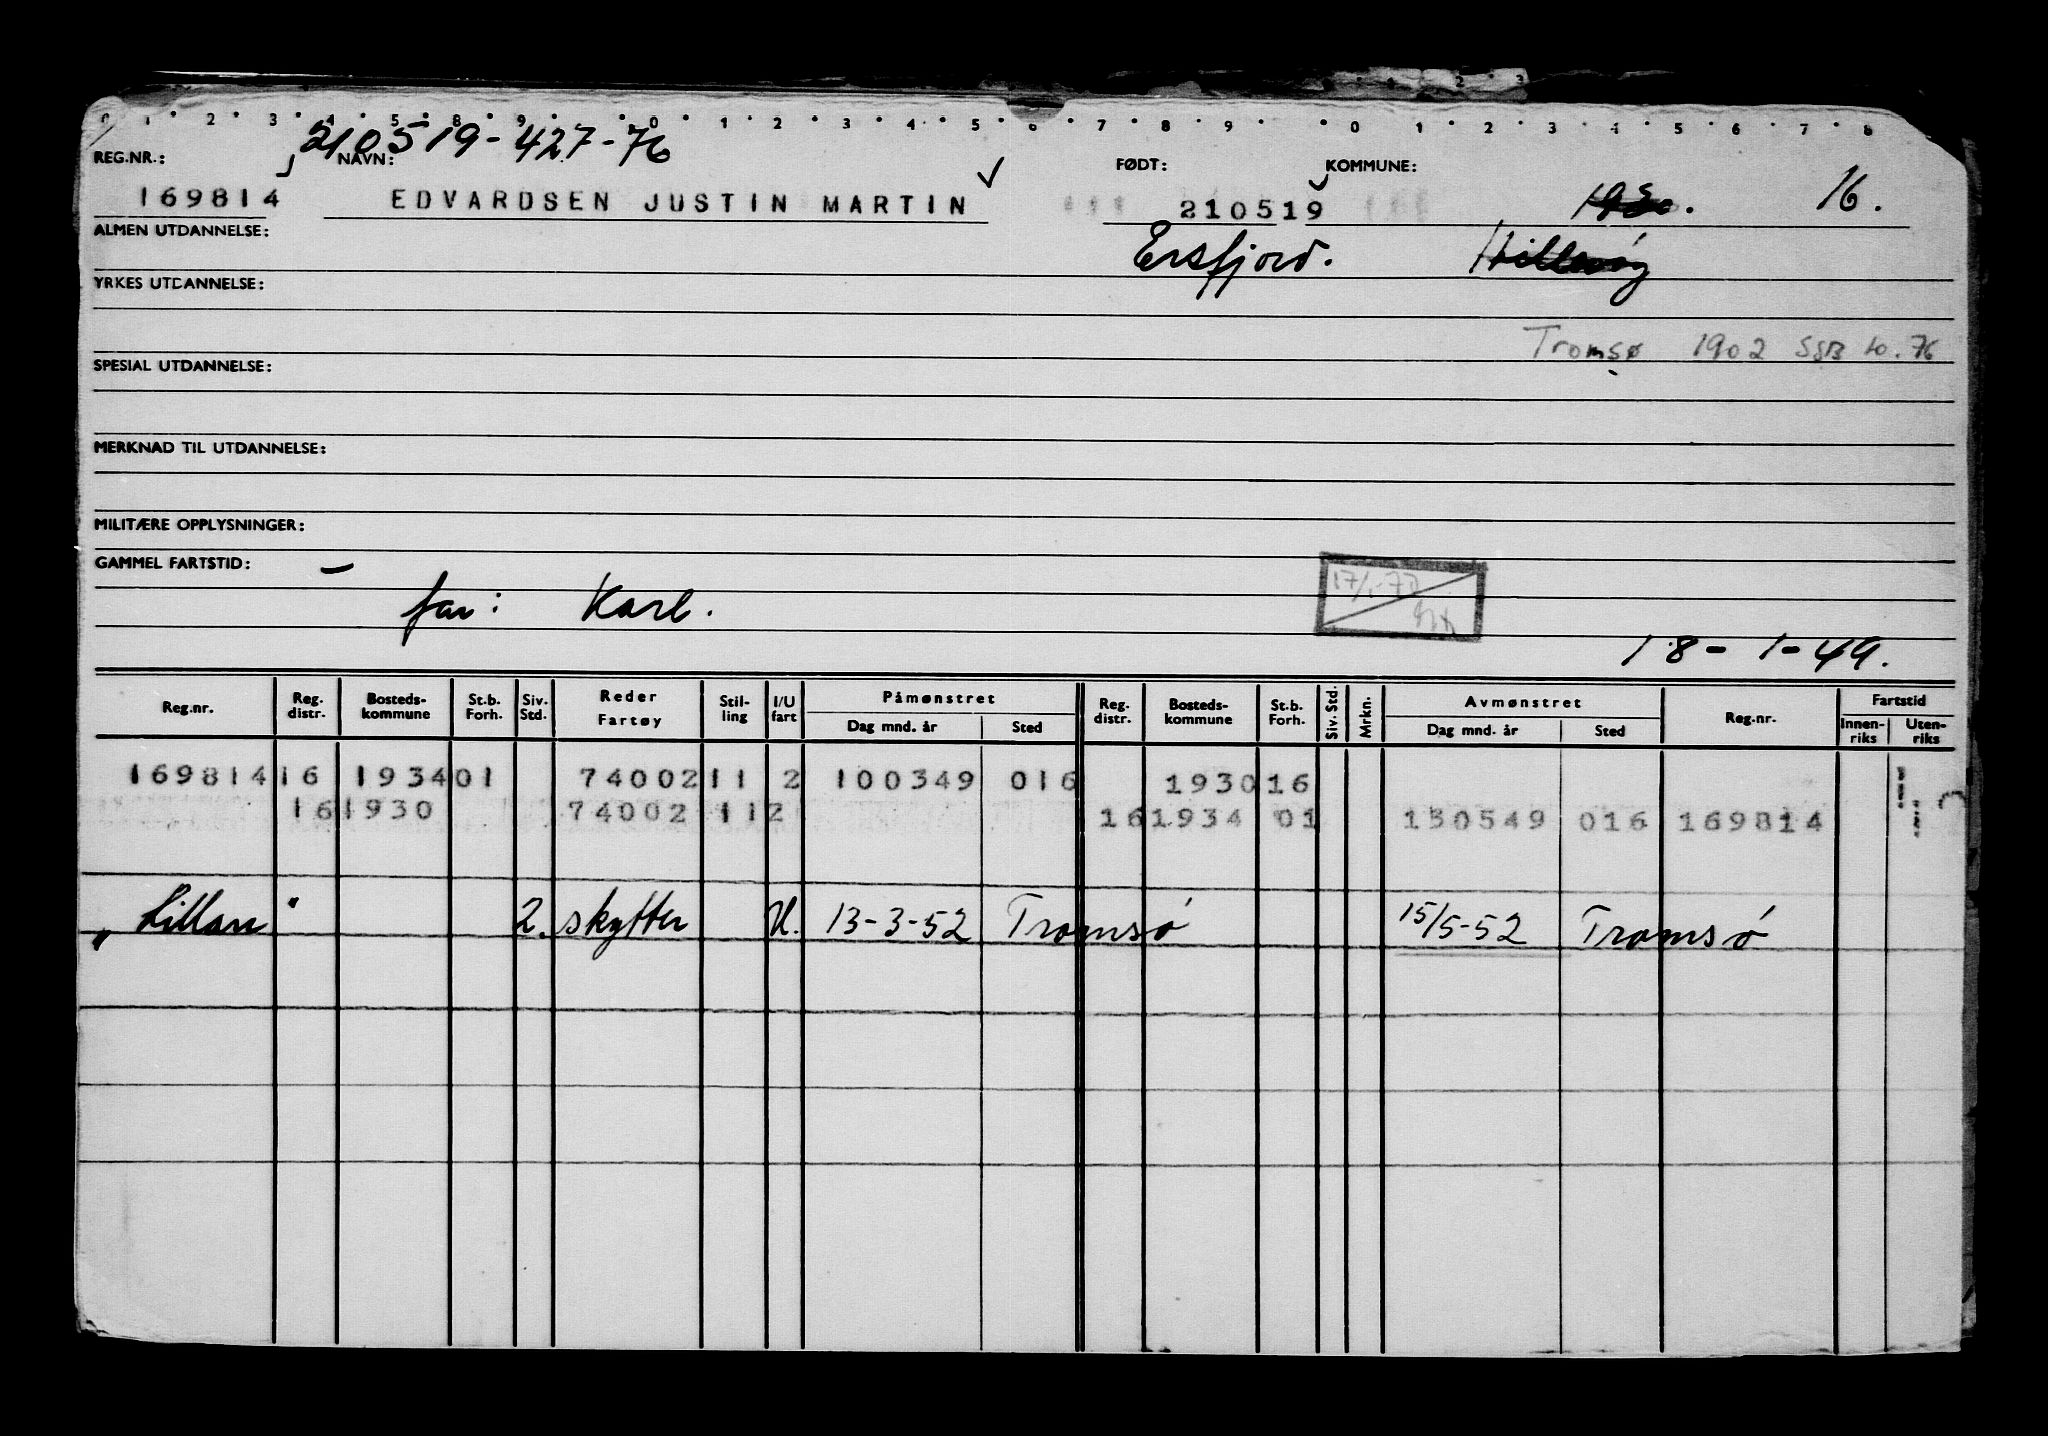 210519-427-76
REG.NR.: NAVN: FØDT: KOMMUNE:
169814 EDVARDSEN JUSTIN MARTIN 210519 1930. 16.
ALMEN UTDANNELSE: Ersfjord. Hillesøy
YRKES UTDANNELSE:
Tromsø 1902 SSB 10.76
SPESIAL UTDANNELSE:
MERKNAD TIL UTDANNELSE:
MILITÆRE OPPLYSNINGER:
GAMMEL FARTSTID: -
far: Karl.
18-1-49.
Reg.nr. Reg. distr. Bosteds-kommune St.b. Forh. Siv. Std. Reder Fartøy Stil-ling I/U fart Påmønstret Dag mnd. år Sted Reg. distr. Bosteds-kommune St.b. Forh. Siv. Std. Mrkn. Avmønstret Dag mnd. år Sted Reg.nr. Fartstid Innen-riks Uten-riks
169814 16 1934 01 74002 11 2 100349 016 1930 16
16 1930 74002 11 2 16 1934 01 130549 016 169814
"Lillan" 2. skytter U. 13-3-52 Tromsø 15/5-52 Tromsø